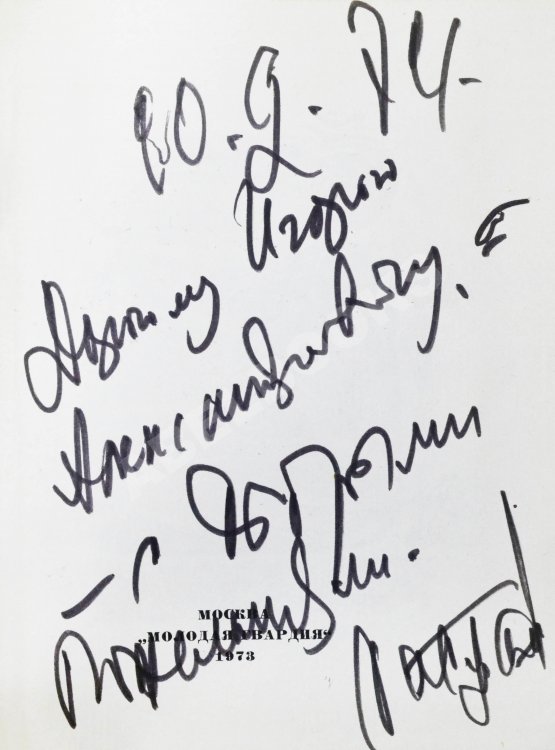 20.9.74.
Дорогому Игорю
Александровичу.
– с добрыми
пожеланиями.
МОСКВА
„МОЛОДАЯ ГВАРДИЯ“
1973